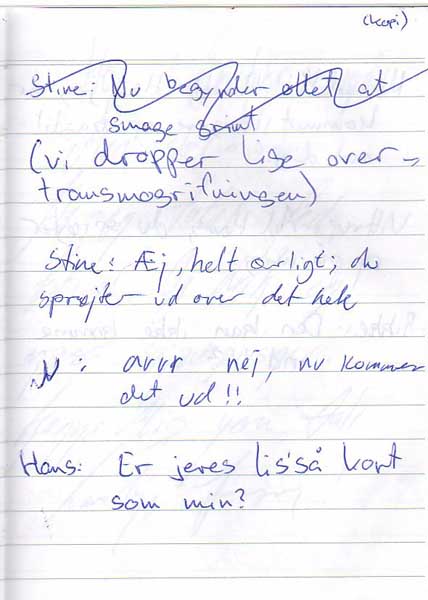 (kopi)
Stine: Nu begynder ottet at
smage grimt
(vi dropper lige over-
transmogrifningen)
Stine: Æj, helt ærligt; du
sprøjter ud over det hele
N: arrr nej, nu kommer
det ud!!
Hans: Er jeres lis'så kort
som min?